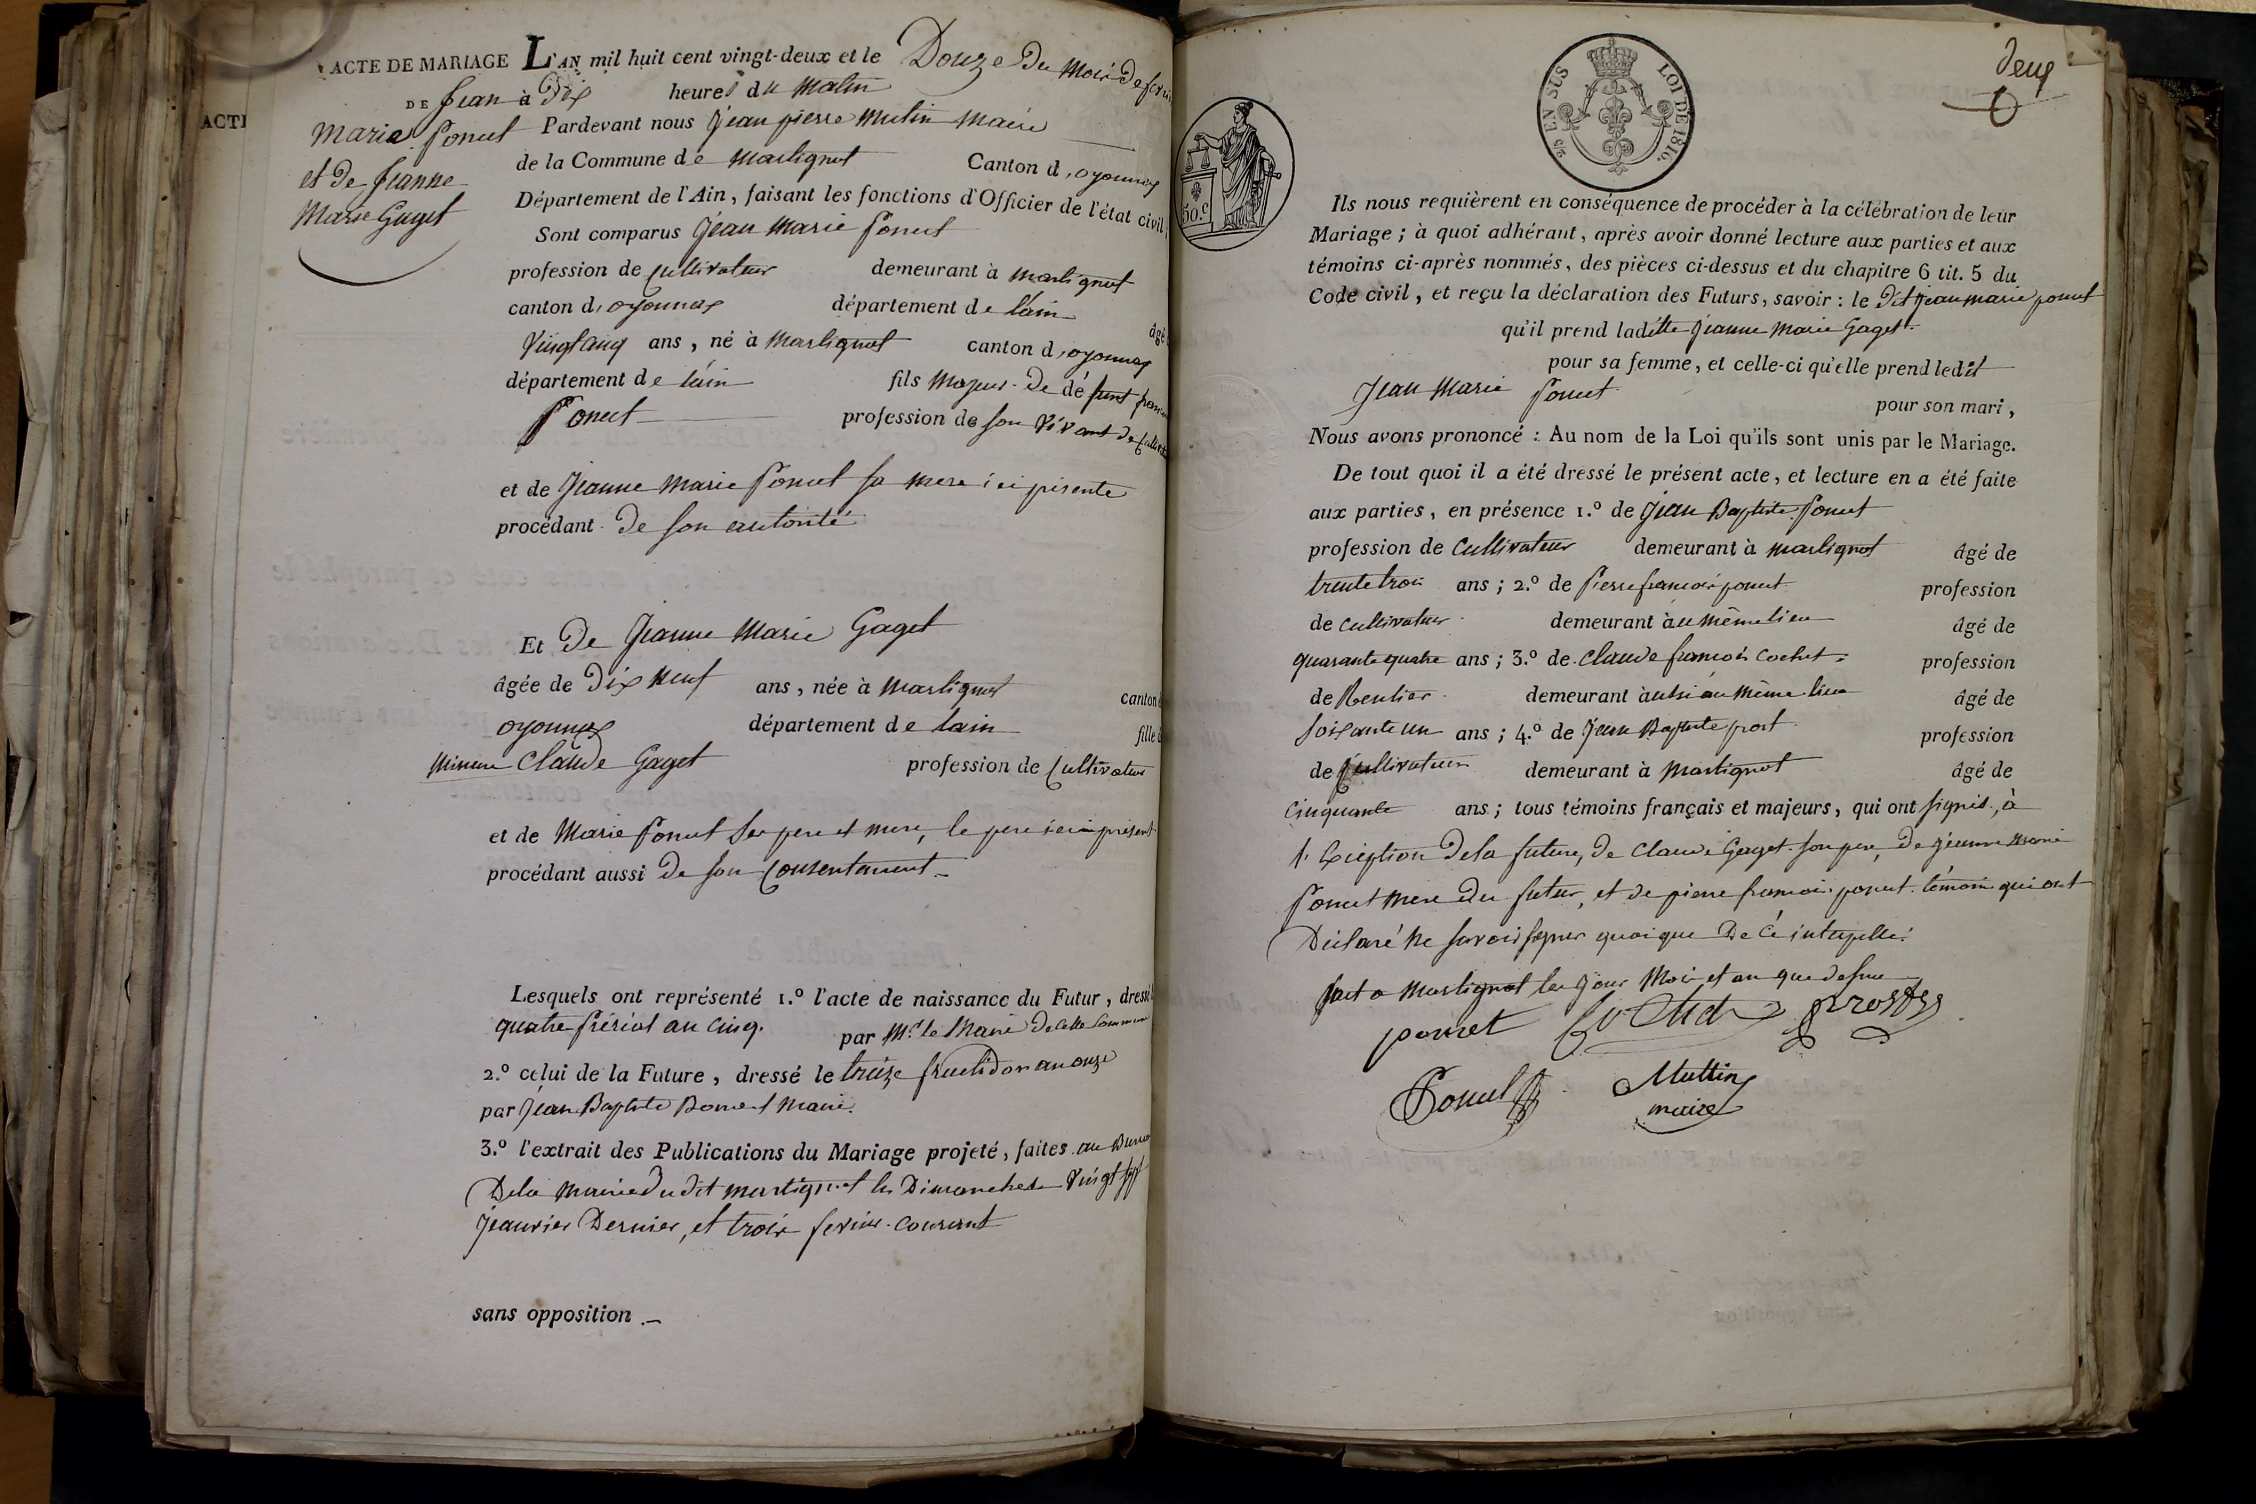 ACTE DE MARIAGE
DE Jean
Marie Poncet
et de Jeanne
Marie Gaget
ACTE
L'AN mil huit cent vingt-deux et le Douze du mois de
à Dix heures du Matin
Pardevant nous Jean pierre Mutin Maire
de la Commune de Martignat Canton d'oyonnax
Département de l'Ain, faisant les fonctions d'Officier de l'état civil
Sont comparus Jean Marie Poncet
profession de Cultivateur demeurant à Martignat
canton d'oyonnax département de l'ain âgé
Vingt cinq ans, né à Martignat canton d'oyonnax
département de l'ain fils Majeur de défunt
Poncet profession de son vivant de
et de Jeanne Marie Poncet sa mere ici présente
procédant de son autorité
Et De Jeanne Marie Gaget
âgée de Dix neuf ans, née à Martignat canton
oyonnax département de l'ain fille
mineure Claude Gaget profession de Cultivateur
et de Marie Poncet ses pere et mere, le pere ici présent
procédant aussi de son Consentement
Lesquels ont représenté 1.º l'acte de naissance du Futur, dressé
quatre frérial an cinq. par Mr. le Maire de cette Commune
2.º celui de la Future, dressé le treize fructidor an onze
par Jean Baptiste Maire.
3.º l'extrait des Publications du Mariage projeté, faites au
De la mairie du dit martignat les Dimanches Vingt sept
Jeanvier Dernier, et trois fevrier courant
sans opposition
Deux
5/2 EN SUS LOI DE 1816.
50.c
Ils nous requièrent en conséquence de procéder à la célébration de leur
Mariage ; à quoi adhérant, après avoir donné lecture aux parties et aux
témoins ci-après nommés, des pièces ci-dessus et du chapitre 6 tit. 5 du
Code civil, et reçu la déclaration des Futurs, savoir : le dit jean marie poncet
qu'il prend laditte Jeanne Marie Gaget
pour sa femme, et celle-ci qu'elle prend ledit
Jean Marie Poncet pour son mari,
Nous avons prononcé : Au nom de la Loi qu'ils sont unis par le Mariage.
De tout quoi il a été dressé le présent acte, et lecture en a été faite
aux parties, en présence 1.º de Jean Baptiste Poncet
profession de Cultivateur demeurant à Martignat âgé de
trente trois ans ; 2.º de Pierre françois poncet profession
de cultivateur demeurant à u même lieu âgé de
quarante quatre ans ; 3.º de Claude françois Cochet profession
de Rentier demeurant à ussi au même lieu âgé de
Soixante un ans ; 4.º de Jean Baptiste prost profession
de Cultivateur demeurant à Martignat âgé de
Cinquante ans ; tous témoins français et majeurs, qui ont signés, à
l'exception de la future, de Claude Gaget son pere, de jeanne marie
Poncet mere du futur, et de pierre françois poncet témoin qui ont
Déclaré ne savoir signer quoique De ce interpellé.
fait a Martignat les jour Mois et an que dessus
poncet Cochet prost
Poncet Muttin
maire